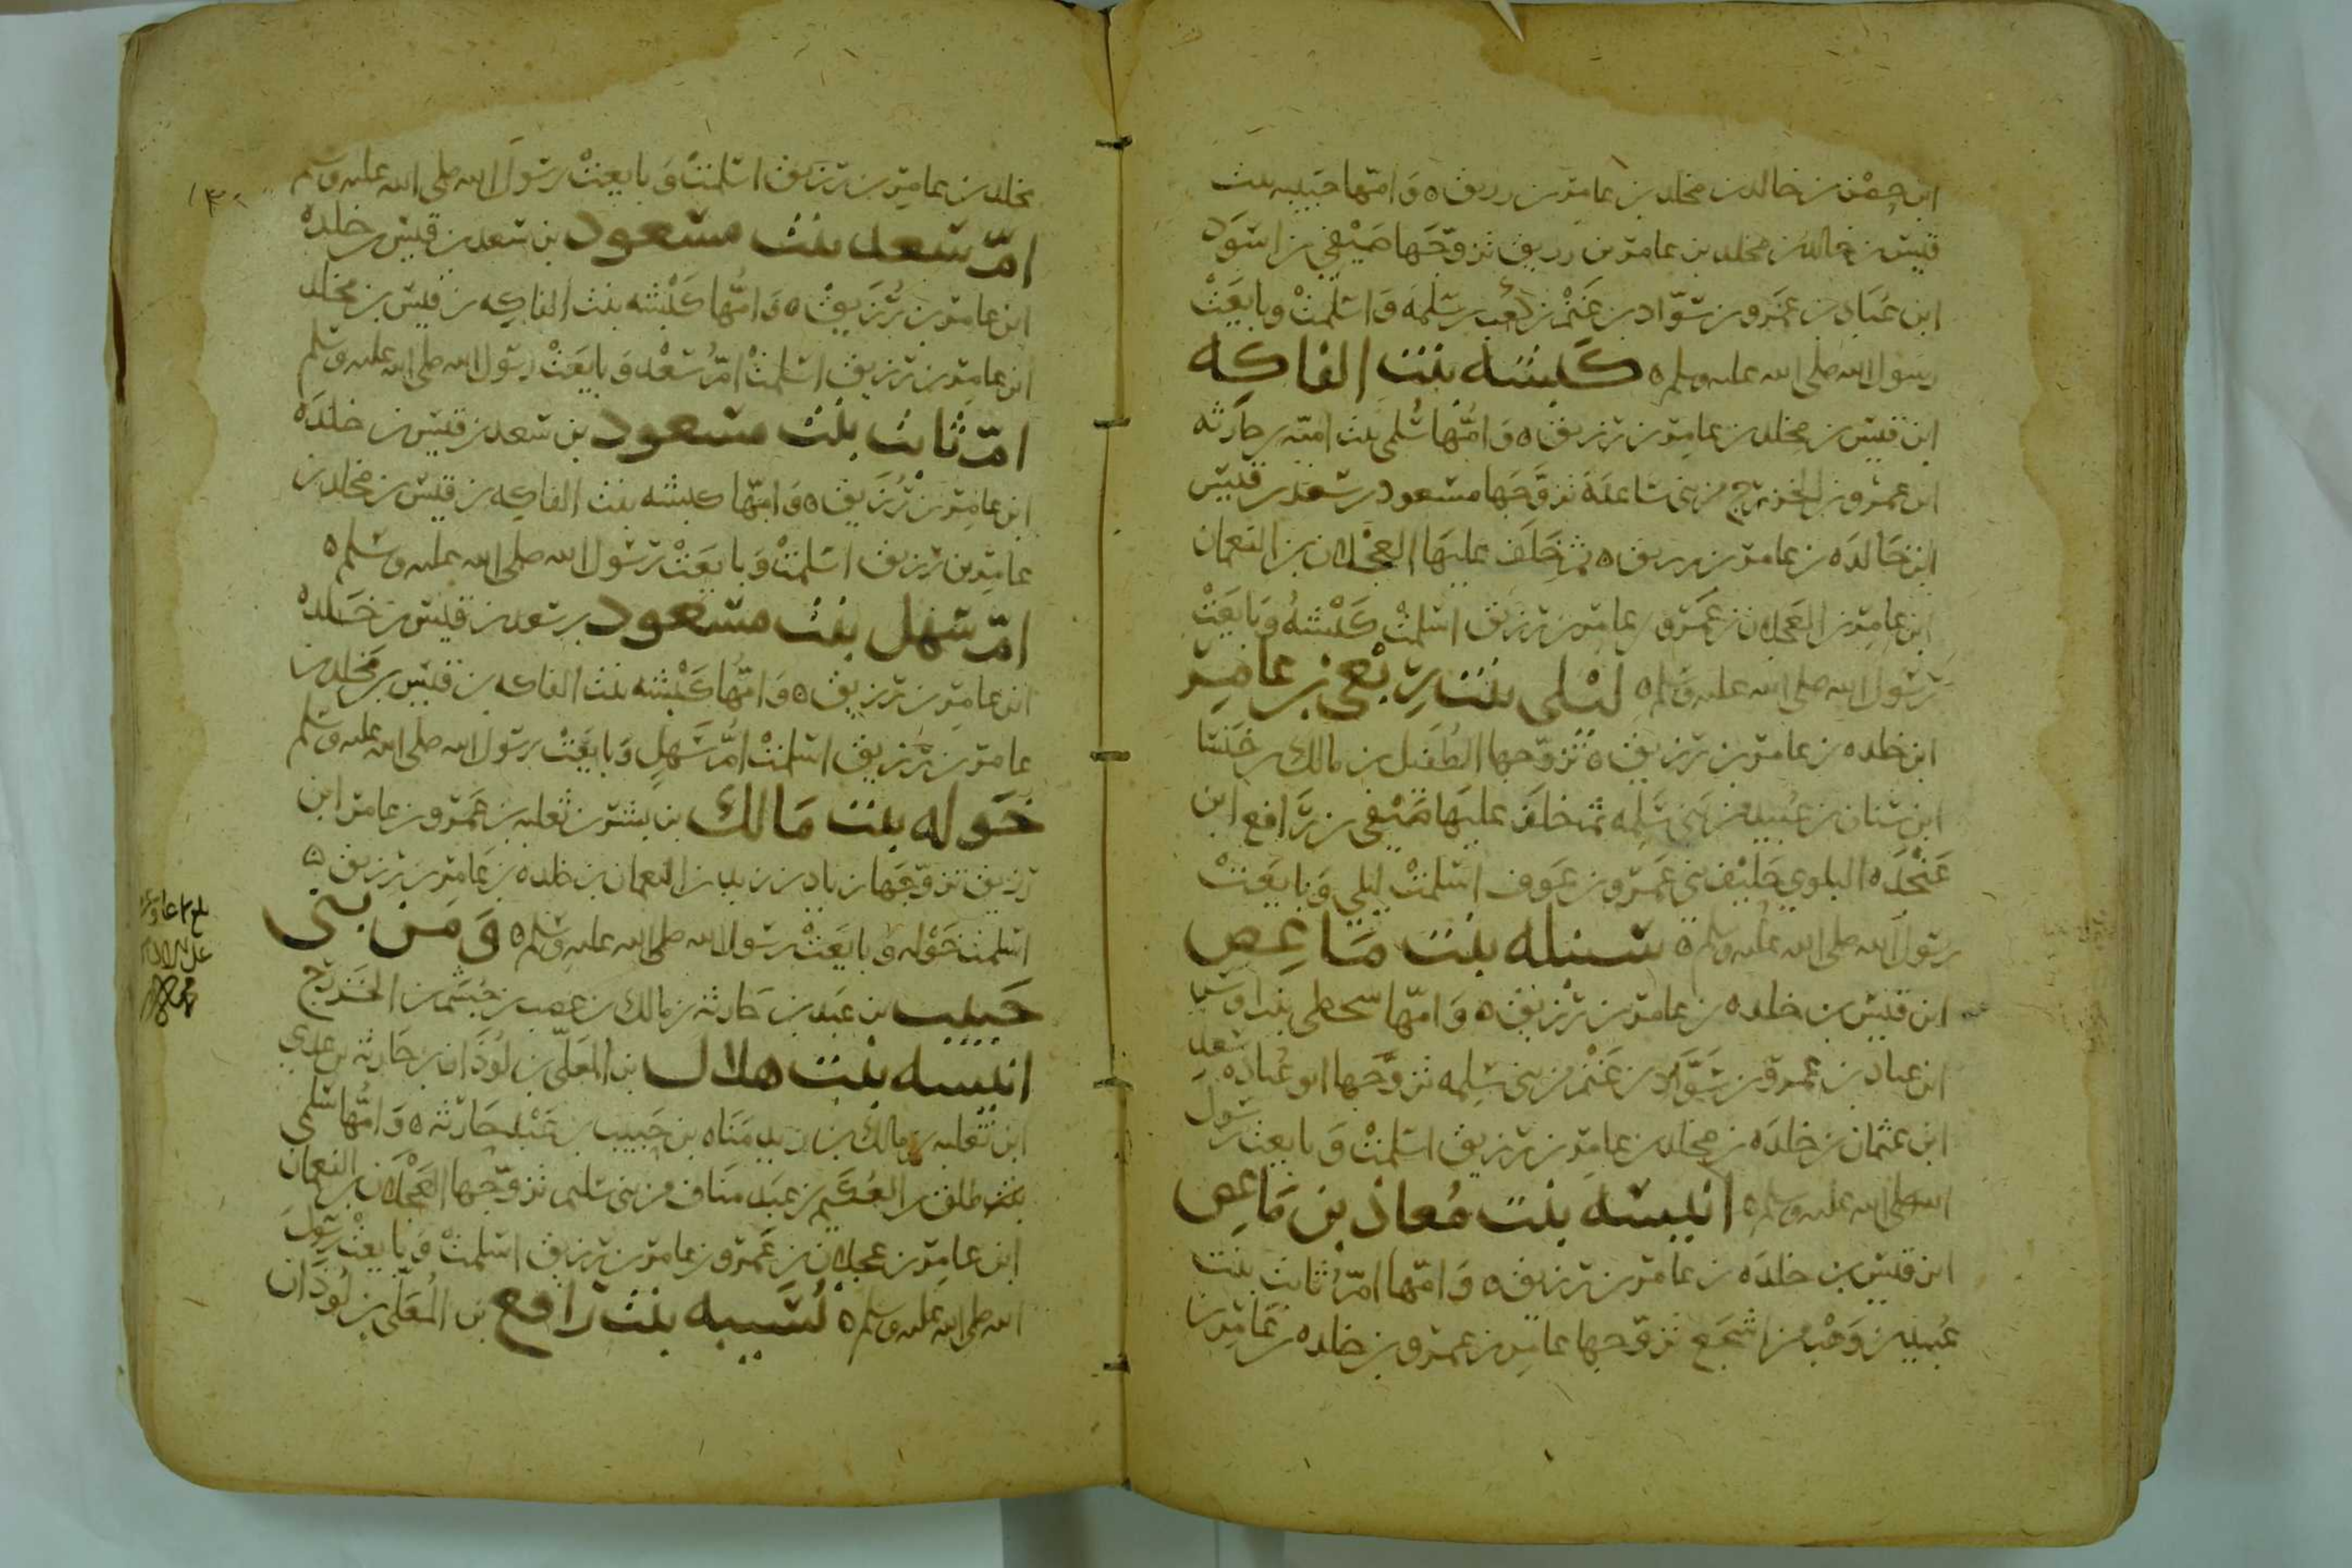 ابن حصن بن خالد بن مخلد بن عامر بن زريق ه وامها حبيبه بنت
قيس بن خالد بن مخلد بن عامر بن زريق تزوجها صيفي بن اسود
ابن عباد بن عمرو بن سواد بن غنم بن كعب بن سلمه واسلمت وبايعت
رسول الله صلى الله عليه وسلم ه كبشه بنت الفاكه
ابن قيس بن مخلد بن عامر بن زريق ه وامها سلمى بنت اميه بن حارثه
ابن عمرو بن الخزرج من بني ساعده تزوجها مسعود بن سعد بن قيس
ابن خالده بن عامر بن زريق ه ثم خلف عليها العجلان بن النعمان
ابن عامر بن العجلان بن عمرو بن عامر بن زريق اسلمت كبشه وبايعت
رسول الله صلى الله عليه وسلم ه ليلى بنت ربعي بن عامر
ابن خلده بن عامر بن زريق ه تزوجها الطفيل بن مالك بن خنسا
ابن سنان بن عبيد من بني سلمه ثم خلف عليها صيفي بن رافع ابن
عنجده البلوي حليف بني عمرو بن عوف اسلمت ليلى وبايعت
رسول الله صلى الله عليه وسلم ه سنبله بنت ماعص
ابن قيس بن خلده بن عامر بن زريق ه وامها سخطى بنت اوس
ابن عباد بن عمرو بن سواد بن غنم من بني سلمه تزوجها ابو عباده سعد
ابن عثمان بن خلده بن مخلد بن عامر بن زريق اسلمت وبايعت رسول
الله صلى الله عليه وسلم ه انيسه بنت معاذ بن ماعص
ابن قيس بن خلده بن عامر بن زريق ه وامها ام ثابت بنت
عبيد بن وهب من اشجع تزوجها عامر بن عمرو بن خلده بن عامر بن
مخلد بن عامر بن زريق اسلمت وبايعت رسول الله صلى الله عليه وسلم
ام سعد بنت مسعود بن سعد بن قيس بن خلده
ابن عامر بن زريق ه وامها كبشه بنت الفاكه بن قيس بن مخلد
ابن عامر بن زريق اسلمت ام سعد وبايعت رسول الله صلى الله عليه وسلم
ام ثابت بنت مسعود بن سعد بن قيس بن خلده
ابن عامر بن زريق ه وامها كبشه بنت الفاكه بن قيس بن مخلد بن
عامر بن زريق اسلمت وبايعت رسول الله صلى الله عليه وسلم ه
ام سهل بنت مسعود بن سعد بن قيس بن خلده
ابن عامر بن زريق ه وامها كبشه بنت الفاكه بن قيس بن مخلد بن
عامر بن زريق اسلمت ام سهل وبايعت رسول الله صلى الله عليه وسلم
خوله بنت مالك بن بشر بن ثعلبه بن عمرو بن عامر ابن
زريق تزوجها زياد بن زيد بن النعمان بن خلده بن عامر بن زريق ه
اسلمت خوله وبايعت رسول الله صلى الله عليه وسلم ه ومن بني
حبيب بن عبد بن حارثه بن مالك بن عصب بن جشم بن الخزرج
انيسه بنت هلال بن المعلى بن لوذان بن حارثه بن عدي
ابن ثعلبه بن مالك بن زيد مناه بن حبيب بن عبد حارثه ه وامها سلمى
بنت طلق بن الحكيم بن عبد مناف من بني سليم تزوجها العجلان بن النعمان
ابن عامر بن عجلان بن عمرو بن عامر بن زريق اسلمت وبايعت رسول
الله صلى الله عليه وسلم ه نسيبه بنت رافع بن المعلى بن لوذان